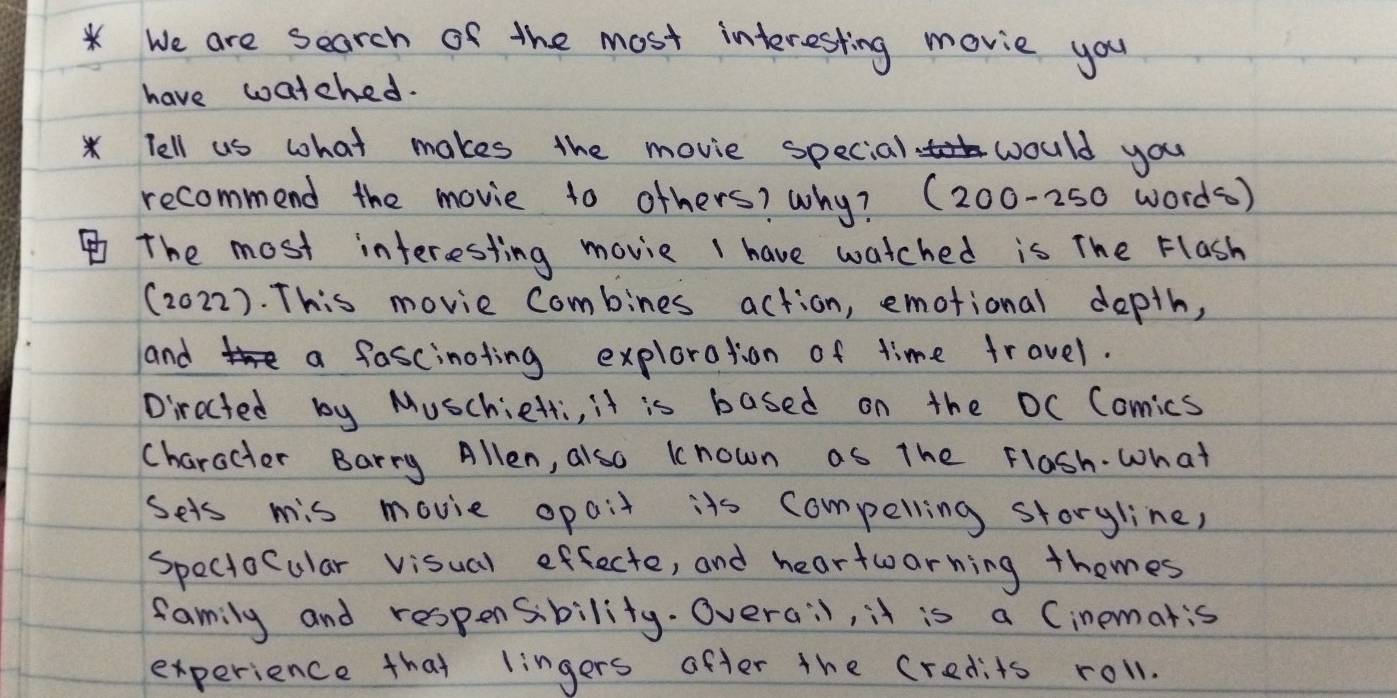 * We are search of the most interesting movie you
have watched.
* Tell us what makes the movie special. would you
recommend the movie to others? why? (200-250 words)
The most interesting movie I have watched is The Flash
(2022). This movie combines action, emotional depth,
and the a fascinoting exploration of time travel.
Directed by Muschietti, it is based on the DC Comics
Character Barry Allen, also known as The Flash. What
Sets mis movie opait its compelling storyline,
Spectocular visual effecte, and heartwarning themes
family and respensibility. Overail, it is a Cinematis
experience that lingers after the credits roll.